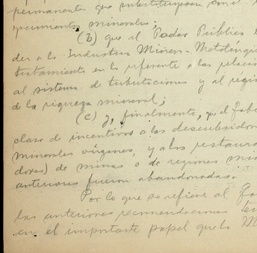 permanente que substituyeron en el
yacimientos minerales;
(B) que el Poder Público
der a la Industria Minero-Metalúrgi
tratamiento en lo referente a las relacio
al sistema de tributaciones y al régi
de la riqueza mineral;
(C) y, finalmente, que el
clase de incentivos a los descubridor
minerales vírgenes, y a los restaura
dores) de minas o de regiones min
anteriores fueron abandonadas."
Por lo que se refiere al
las anteriores recomendaciones
en el importante papel que la M